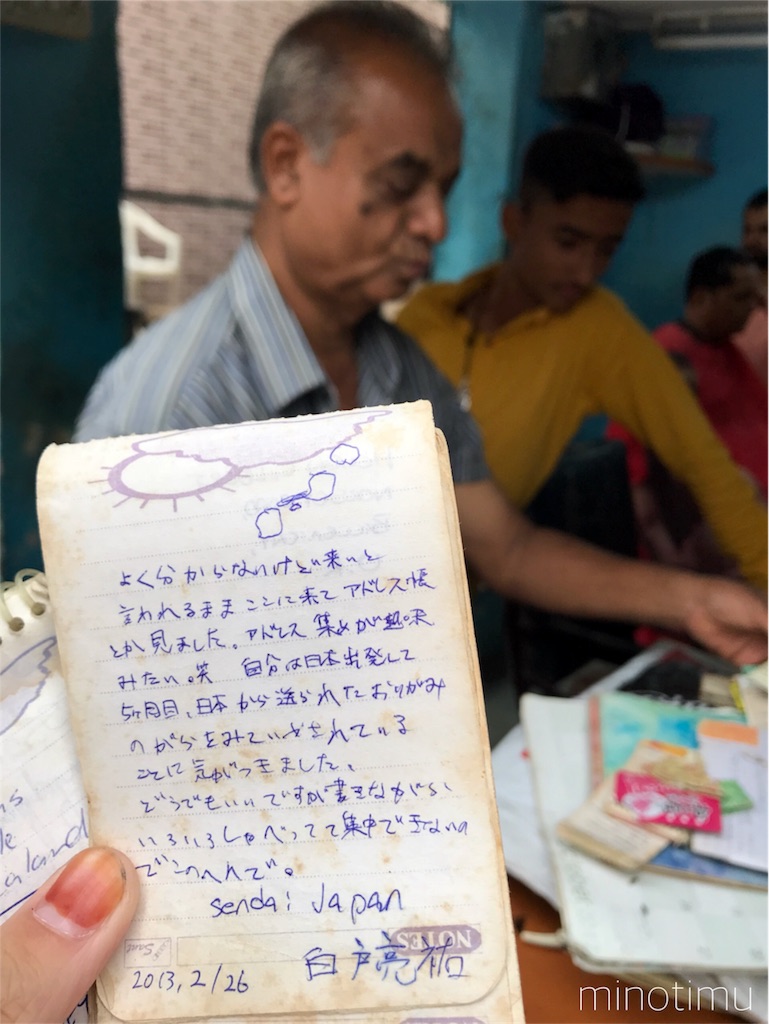 よく分からないけど来いと
言われるままここに来てアドレス帳
とか見ました。アドレス集めが趣味
みたい。笑 自分は日本出発して
5ヶ月目、日本から送られたおりがみ
のがらを
ことに気がつきました。
どうでもいいですが書きながらい
いろいろしゃべってて集中できないの
でこのへんで。
sendai Japan
NOTES
2013, 2/26 白戸亮祐
aland
minotimu